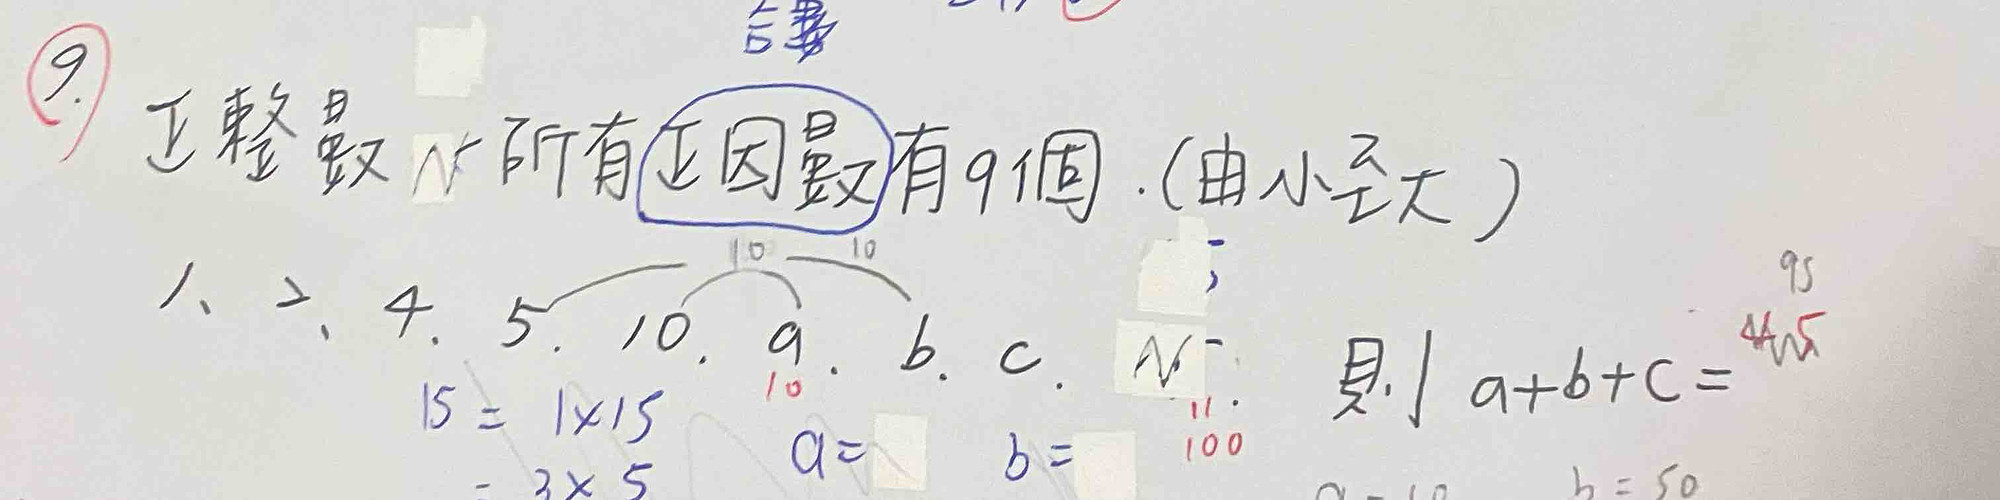 9.
正整數 N 所有正因數有9個.(由小至大)
10 10
1、2、4.5.10.a.b.c.N. 則 a+b+c=
95
10
15 = 1×15
a= b=
11.
100
= 3×5
b=50